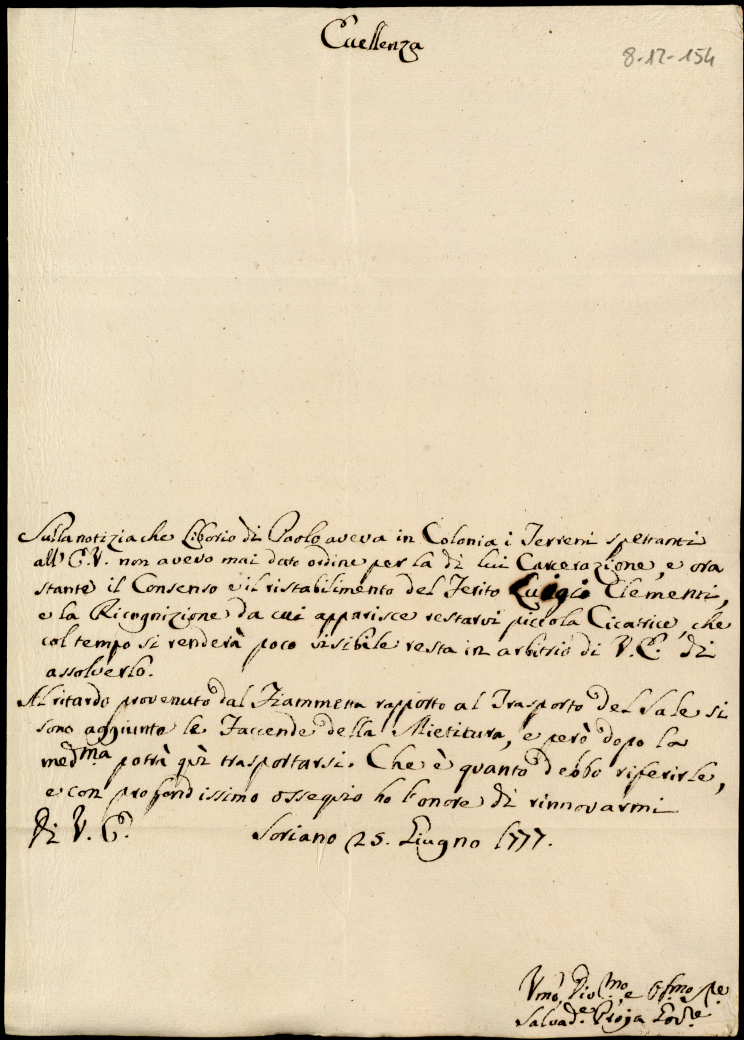 Eccellenza
8-12-154
Sulla notizia che Liborio di Paolo aveva in Colonia i Terreni spettanti
all' E.V. non avevo mai dato ordine per la di lui Carcerazione, e ora
stante il Consenso e il ristabilimento del Ferito Luigio Clementi,
e la Ricognizione da cui apparisce restarvi piccola Cicatrice, che
col tempo si renderà poco visibile resta in arbitrio di V.E. di
assolverlo.
Al ritardo provenuto dal Fiammetta rapporto al Trasporto del Sale si
sono aggiunte le Faccende della Mietitura, e però dopo la
medma potrà quì trasportarsi. Che è quanto debbo riferirle,
e con profondissimo ossequio ho l'onore di rinnovarmi
Di V.E. Soriano 25. Giugno 1777.
Vmo, Divmo, e
Salvade